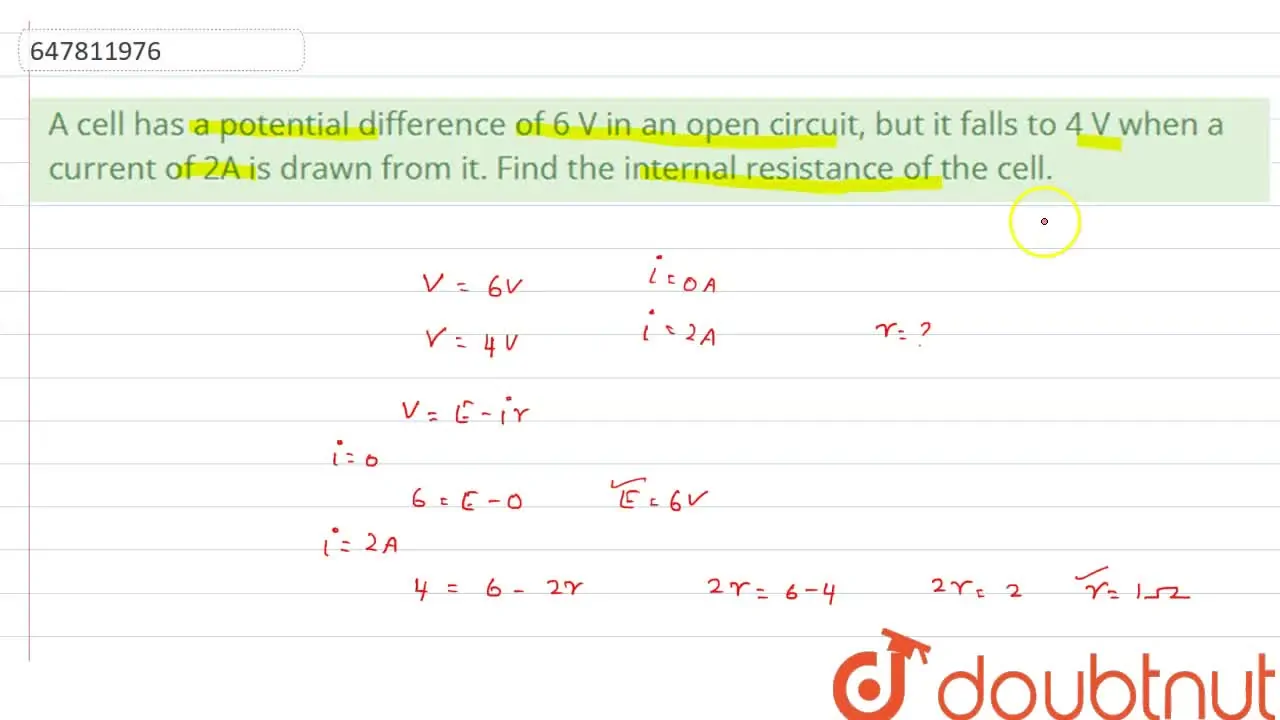 647811976
A cell has a potential difference of 6 V in an open circuit, but it falls to 4 V when a
current of 2A is drawn from it. Find the internal resistance of the cell.
V = 6V i = 0A
V = 4V i = 2A r = ?
V = E - ir
i = 0
6 = E - 0 E = 6V
i = 2A
4 = 6 - 2r 2r = 6-4 2r = 2 r = 1Ω
doubtnut